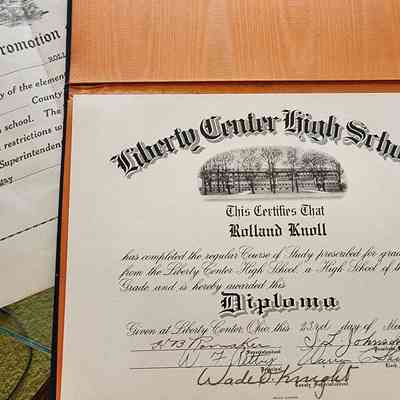 romotion
ROLL
y of the element
County
school. The
restrictions w
Superintendent
Liberty Center High Scho
This Certifies That
Rolland Knoll
has completed the regular Course of Study prescribed for grad
from the Liberty Center High School, a High School of the
Grade, and is hereby awarded this
Diploma
Given at Liberty Center, Ohio, this 23rd day of Ma
Superintendent
Principal
Clerk
Wade D. Knight
County Superintendent